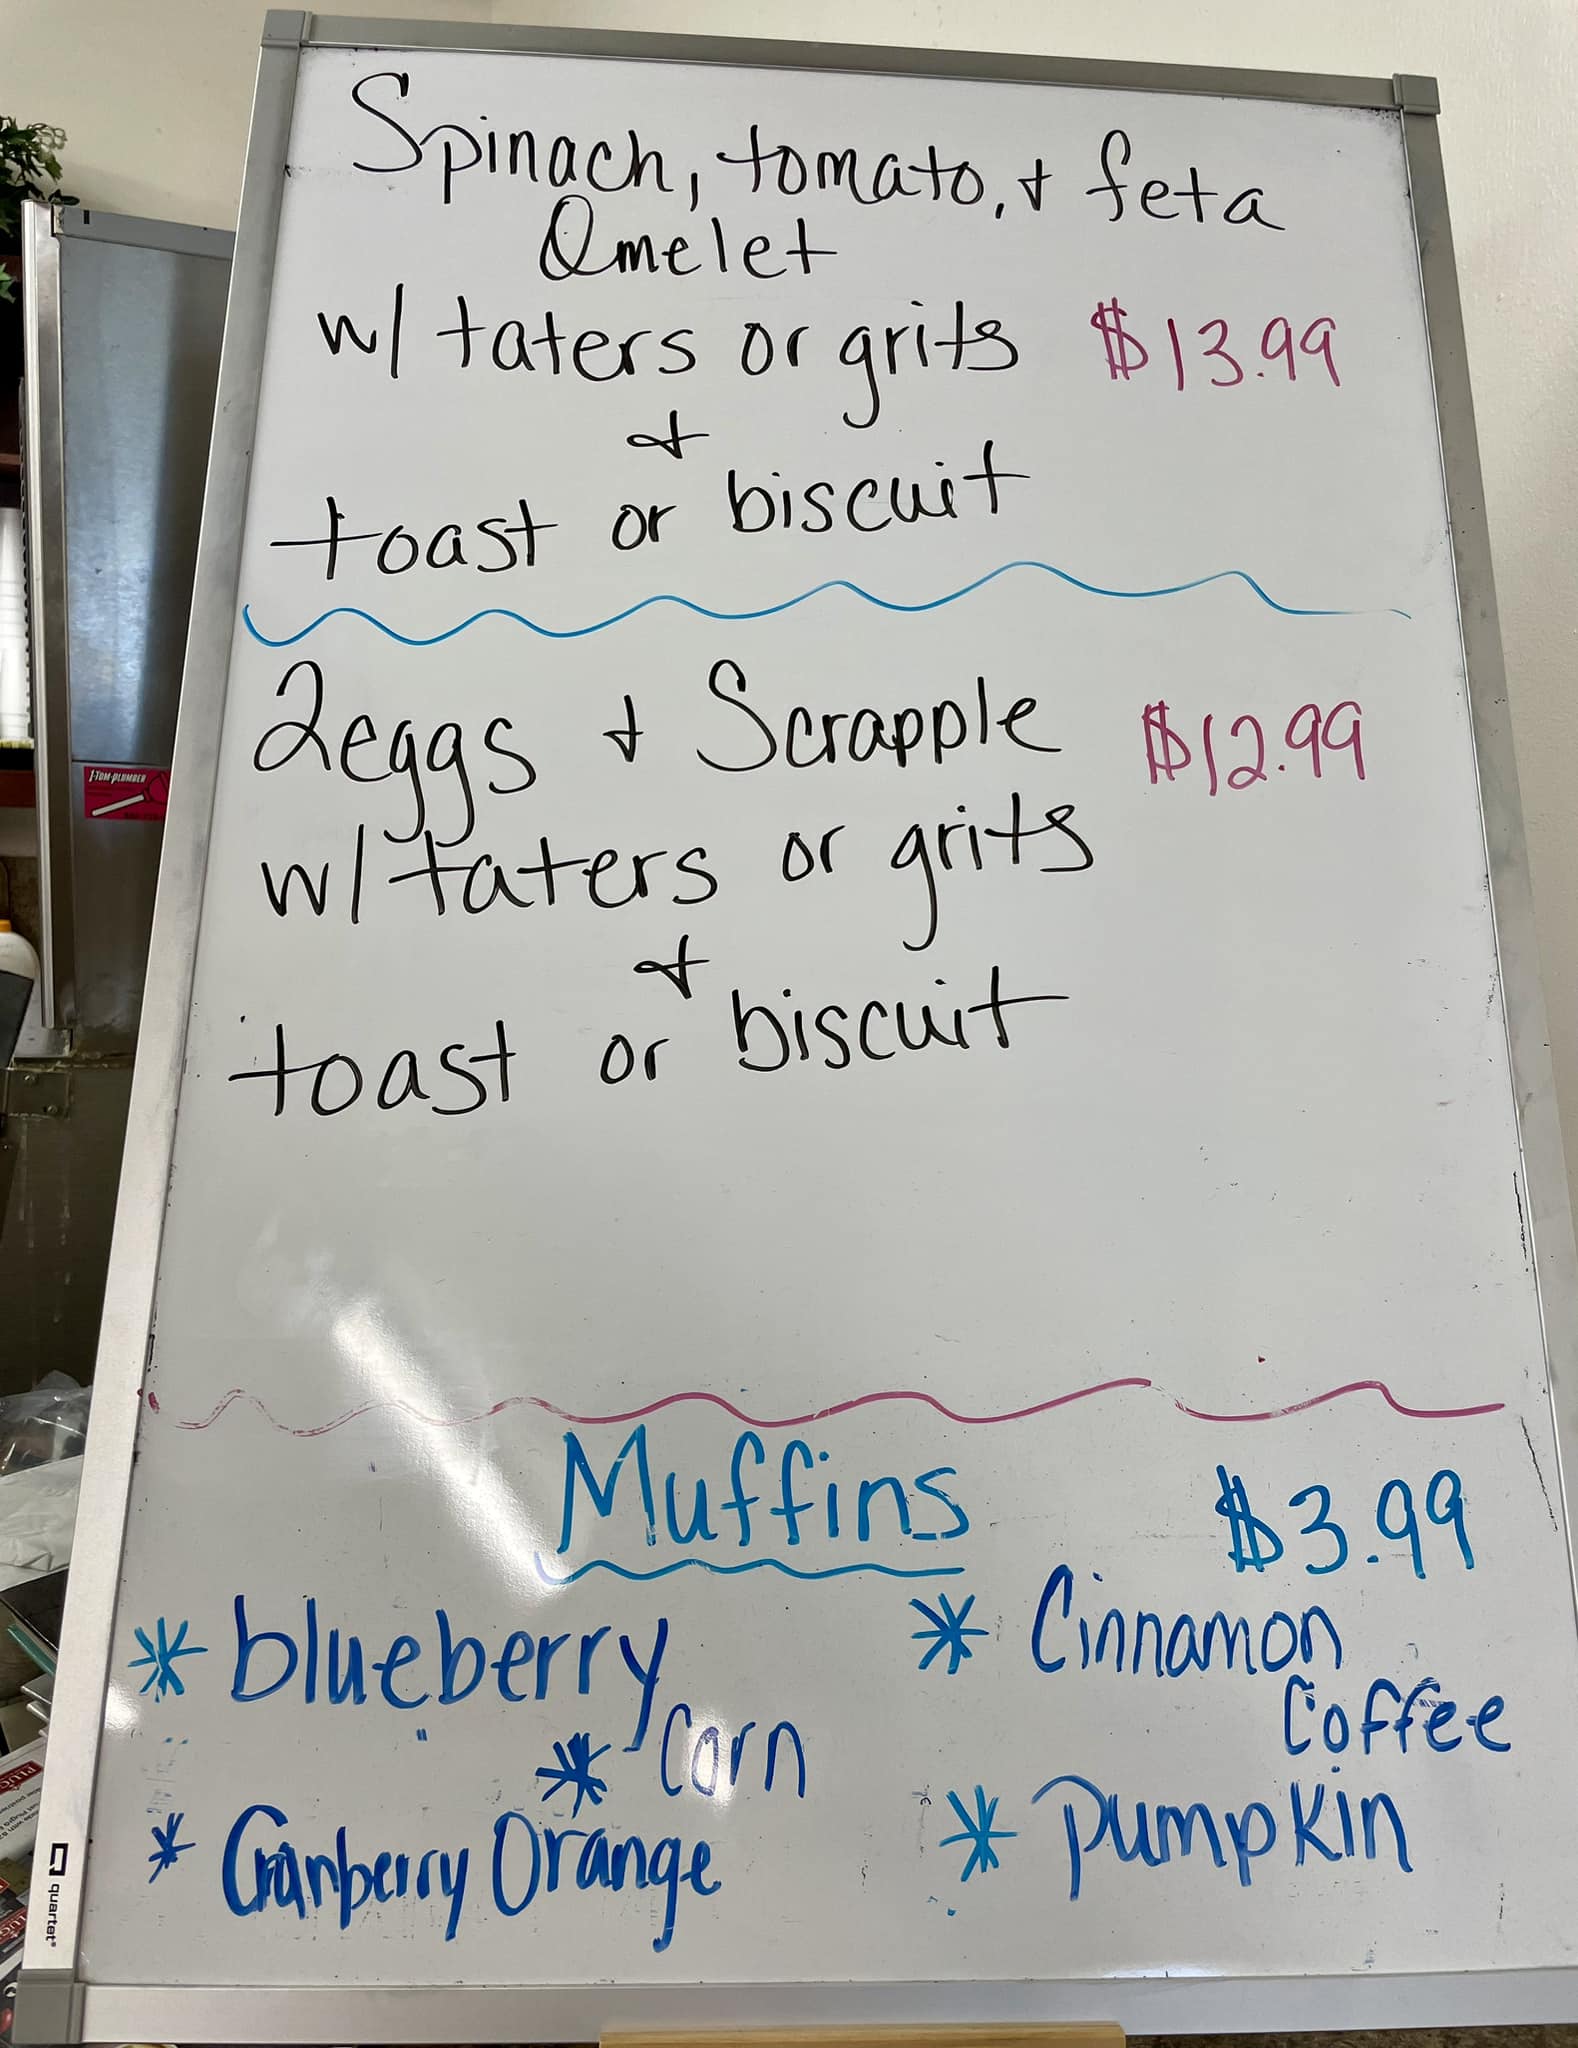 Spinach, tomato, & feta
Omelet
w/ taters or grits $13.99
&
toast or biscuit
2eggs & Scrapple $12.99
w/ taters or grits
&
toast or biscuit
Muffins $3.99
* blueberry
* Cinnamon
Coffee
* Corn
* Cranberry Orange
* Pumpkin
quartet
1-TOM-PLUMBER